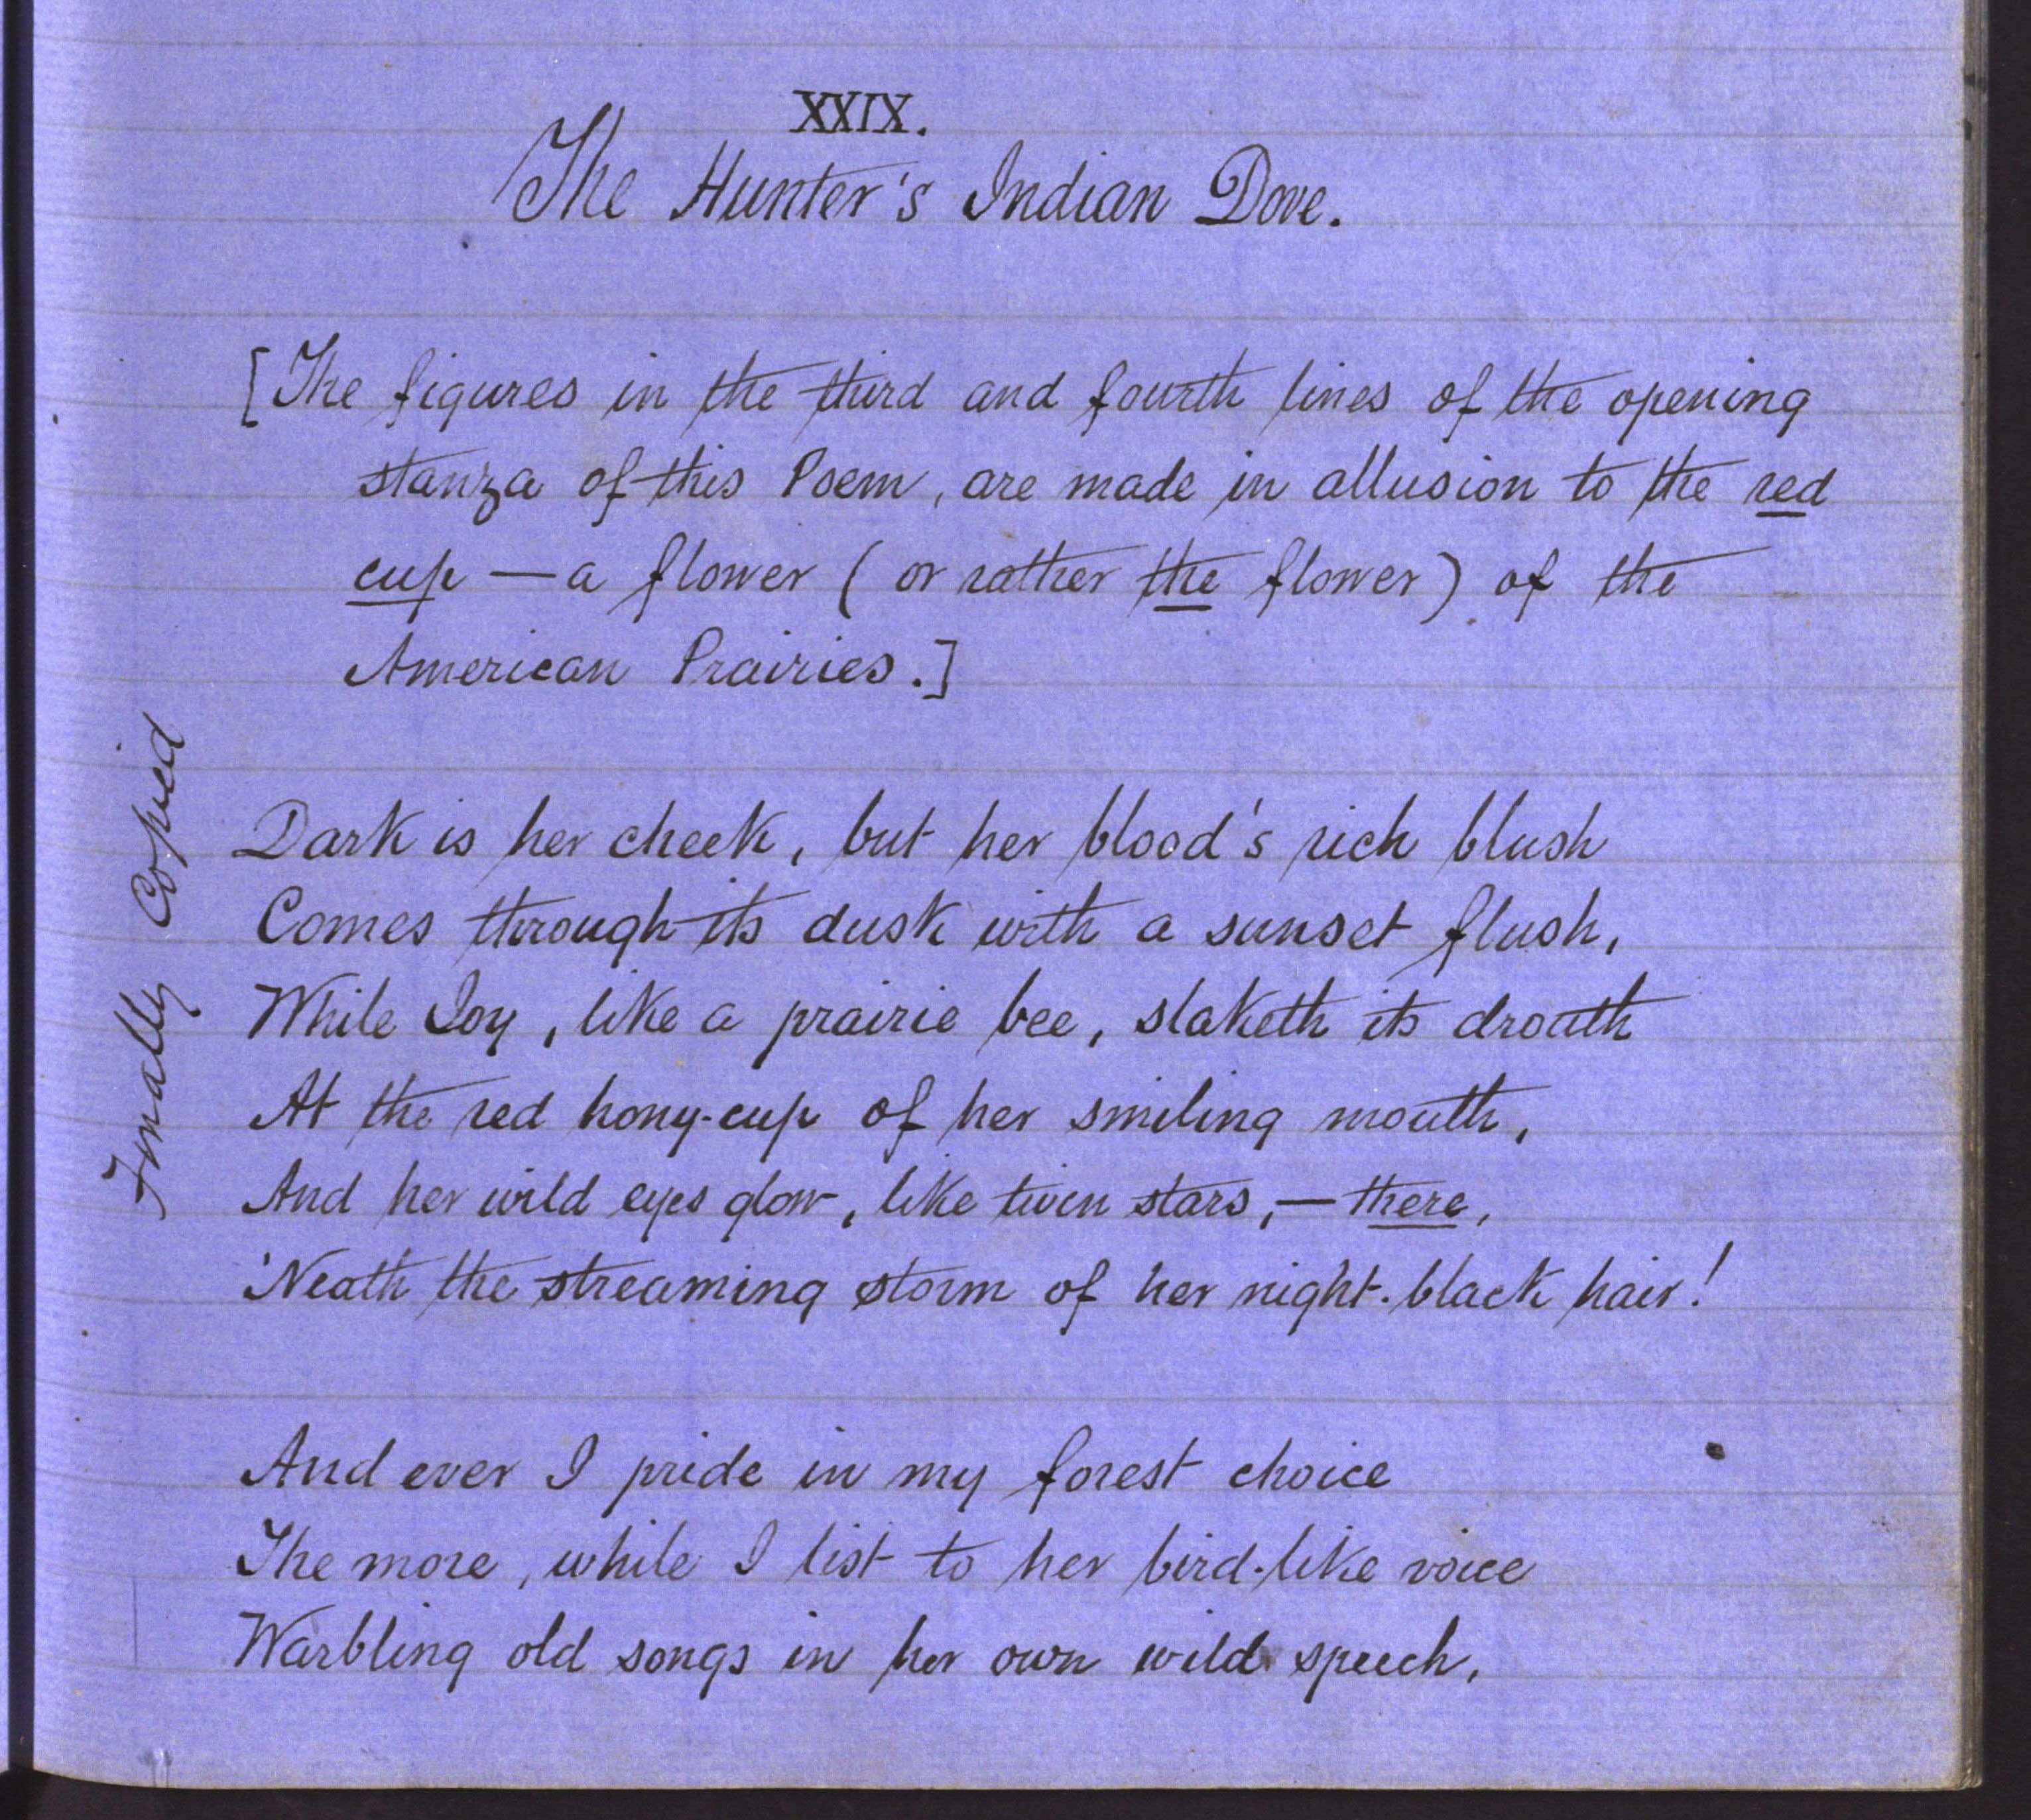 XXIX.
The Hunter's Indian Dove.
[The figures in the third and fourth lines of the opening
stanza of this Poem, are made in allusion to the red
cup — a flower (or rather the flower) of the
American Prairies.]
Finally Copied
Dark is her cheek, but her blood's rich blush
Comes through its dusk with a sunset flush,
While Joy, like a prairie bee, slaketh its drouth
At the red hony-cup of her smiling mouth,
And her wild eyes glow, like twin stars, — there,
'Neath the streaming storm of her night-black hair!
And ever I pride in my forest choice
The more, while I list to her bird-like voice
Warbling old songs in her own wild speech,